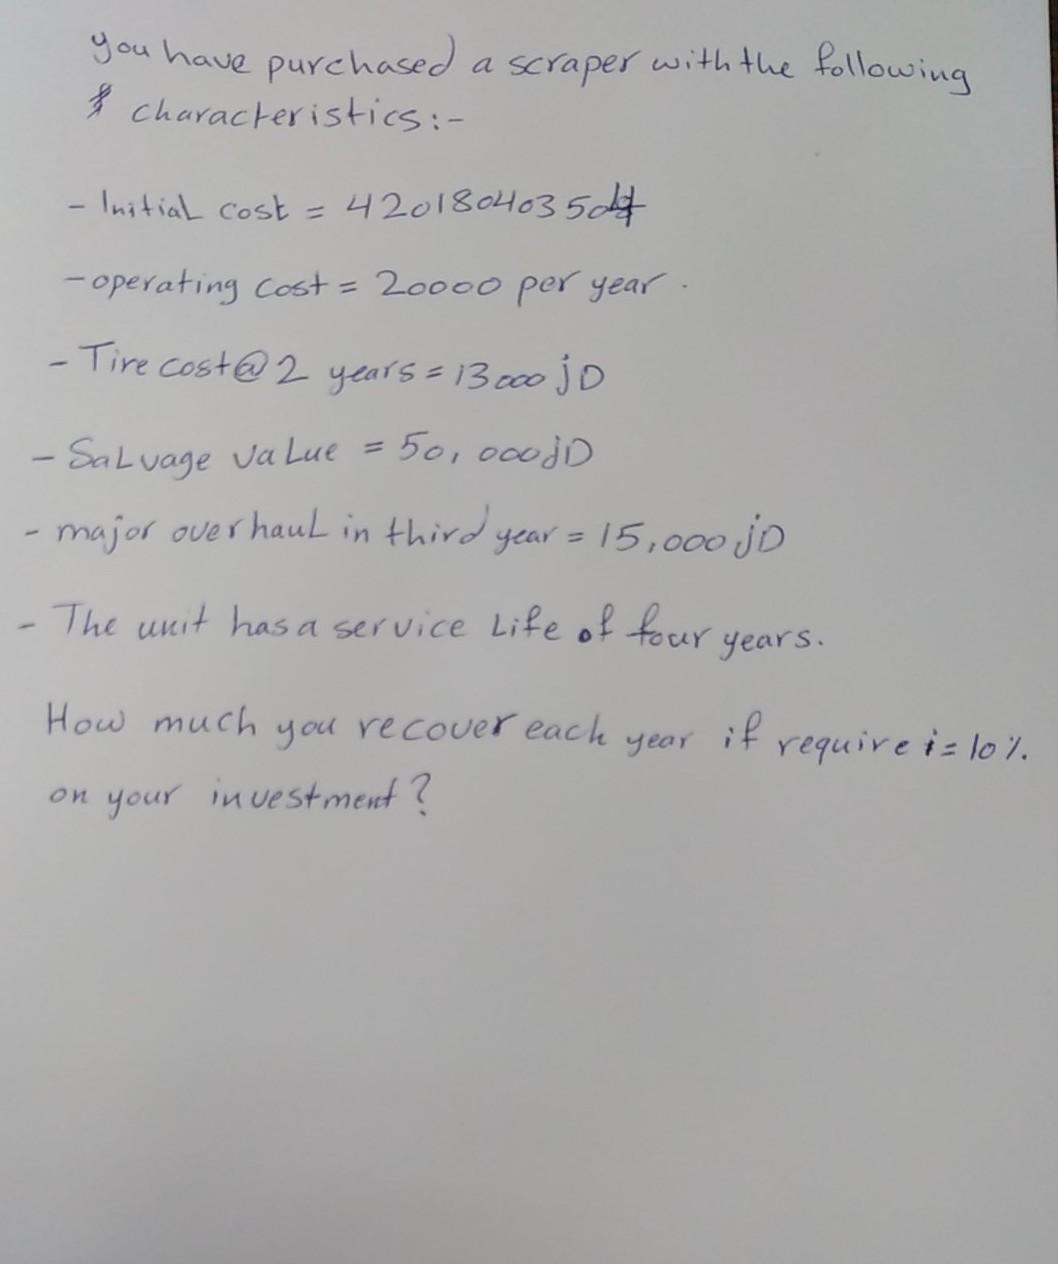 you have purchased a scraper with the following
characteristics:-
- Initial cost = 42018040350
- operating cost = 20000 per year.
- Tire cost @ 2 years = 13000 jD
- Salvage value = 50,000 jD
- major over haul in third year = 15,000 jD
- The unit has a service Life of four years.
How much you recover each year if require i = 10 %.
on your investment?